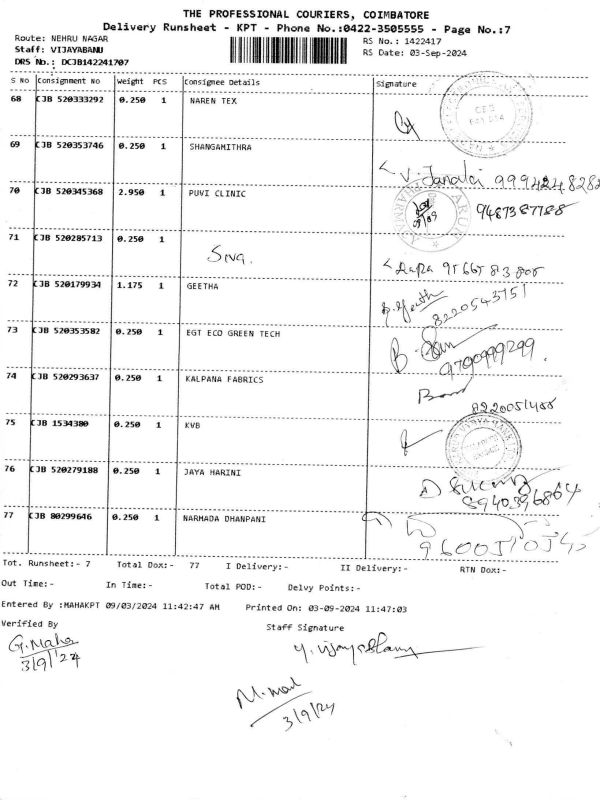 THE PROFESSIONAL COURIERS, COIMBATORE
Delivery Runsheet - KPT - Phone No.:0422-3505555 - Page No.:7
Route: NEHRU NAGAR
RS No.: 1422417
Staff: VIJAYABANU
RS Date: 03-Sep-2024
DRS No.: DCJB142241707
S No Consignment No Weight PCS Consignee Details Signature
68 CJB 520333292 0.250 1 NAREN TEX
69 CJB 520353746 0.250 1 SHANGAMITHRA
V. Janaki 9994248282
70 CJB 520345368 2.950 1 PUVI CLINIC
9487387788
71 CJB 520285713 0.250 1 Siva.
72 CJB 520179934 1.175 1 GEETHA
8220543751
73 CJB 520353582 0.250 1 EGT ECO GREEN TECH
9790999299.
74 CJB 520293637 0.250 1 KALPANA FABRICS
75 CJB 1534380 0.250 1 KVB
76 CJB 520279188 0.250 1 JAYA HARINI
77 CJB 80299646 0.250 1 NARMADA DHANPANI
Tot. Runsheet:- 7 Total Dox:- 77 I Delivery:- II Delivery:- RTN Dox:-
Out Time:- In Time:- Total POD:- Delvy Points:-
Entered By :MAHAKPT 09/03/2024 11:42:47 AM Printed On: 03-09-2024 11:47:03
Verified By Staff Signature
G.Maha
3/9/24
3/9/24